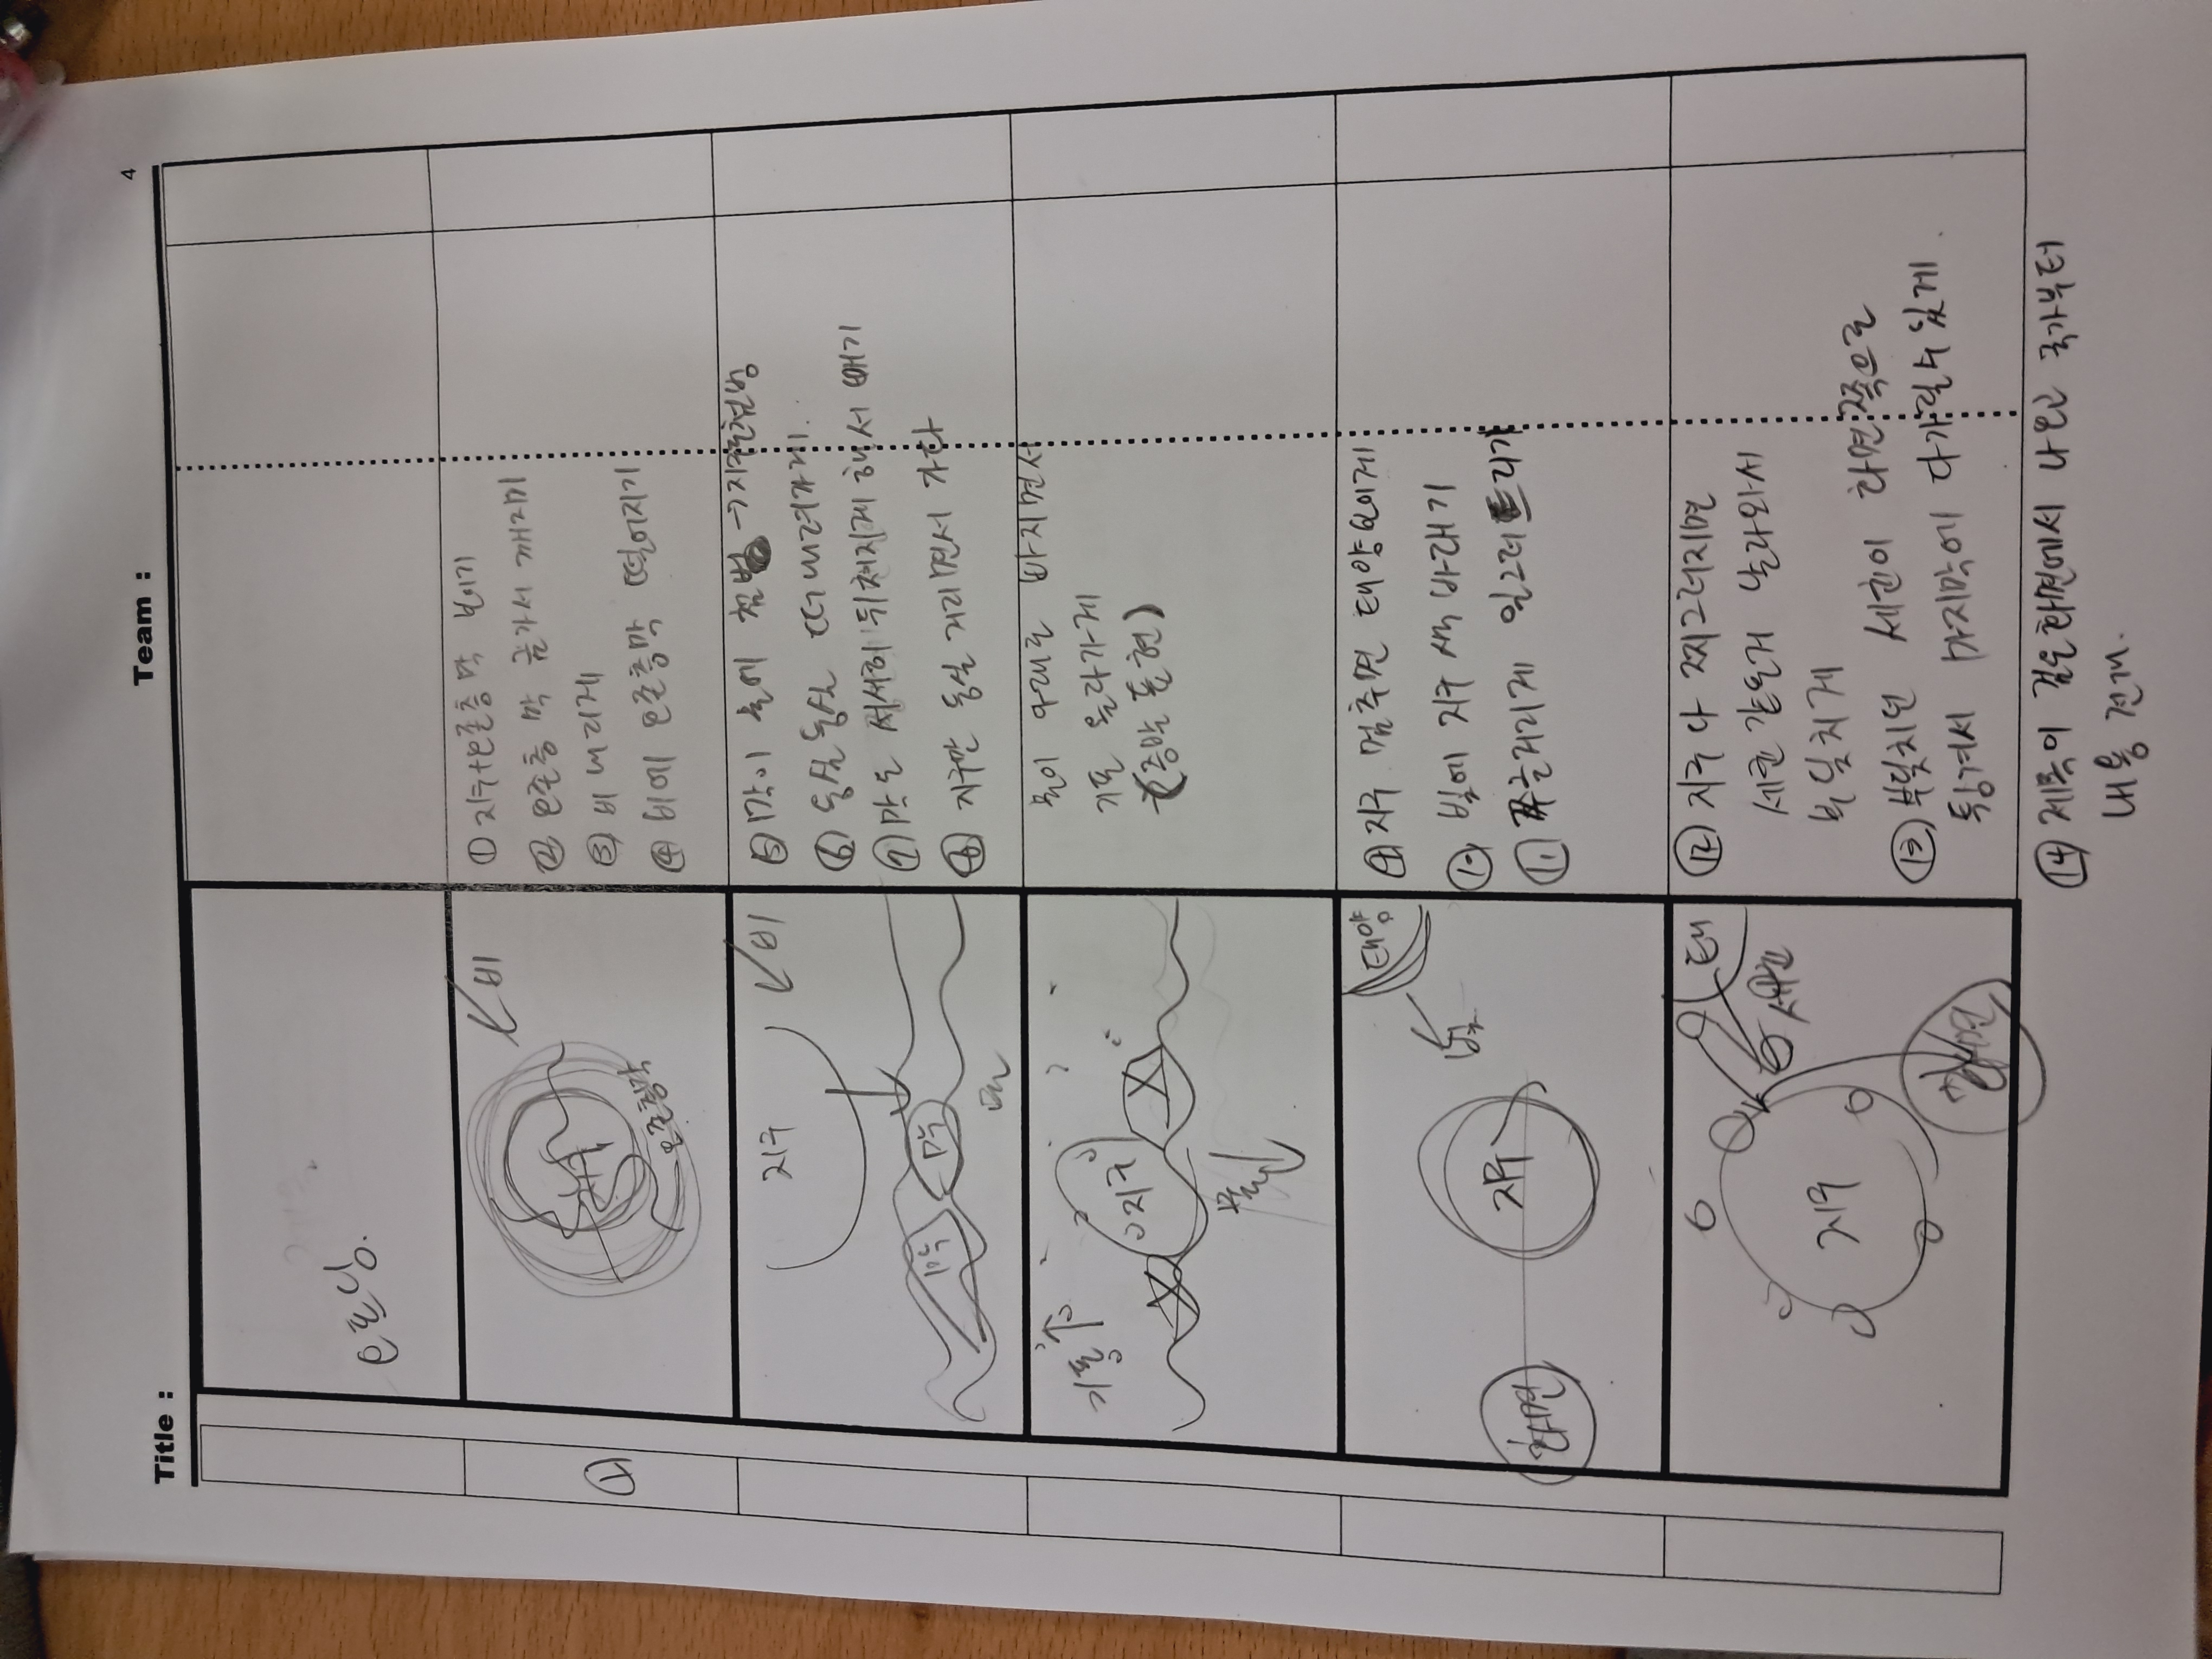 Title :
Team :
4
오프닝.
①
비
지구
오존층막
① 지구+오존층 막 보이기
② 오존층 막 금가서 깨지기
③ 비 내리게
④ 비에 오존층막 떨어지기
지구
비
막
막
물
⑤ 막이 물에 첨벙 → 지구도 첨벙
⑥ 둥실둥실 떠내려가게.
⑦ 막도 서서히 뒤쳐지게 해서 빼기
⑧ 지구만 둥실 거리면서 가다
기포
지구
물
물이 아래로 빠지면서
기포 올라가게
(증발 표현)
태양
빛
지구
화면
⑨ 지구 멈추면 태양 보이게
⑩ 빛에 지구 색 바래기
⑪ 쭈글거리게 일그러트리기
태
세균
지구
화면
⑫ 지구 다 찌그러지면
세균 같은게 날라와서
부딪치게
⑬ 부딪치던 세균이 화면쪽으로
튕겨서 마지막에 다가릴수 있게.
⑭ 제목이 검은화면에서 나오고 국가부터
내용 전개.